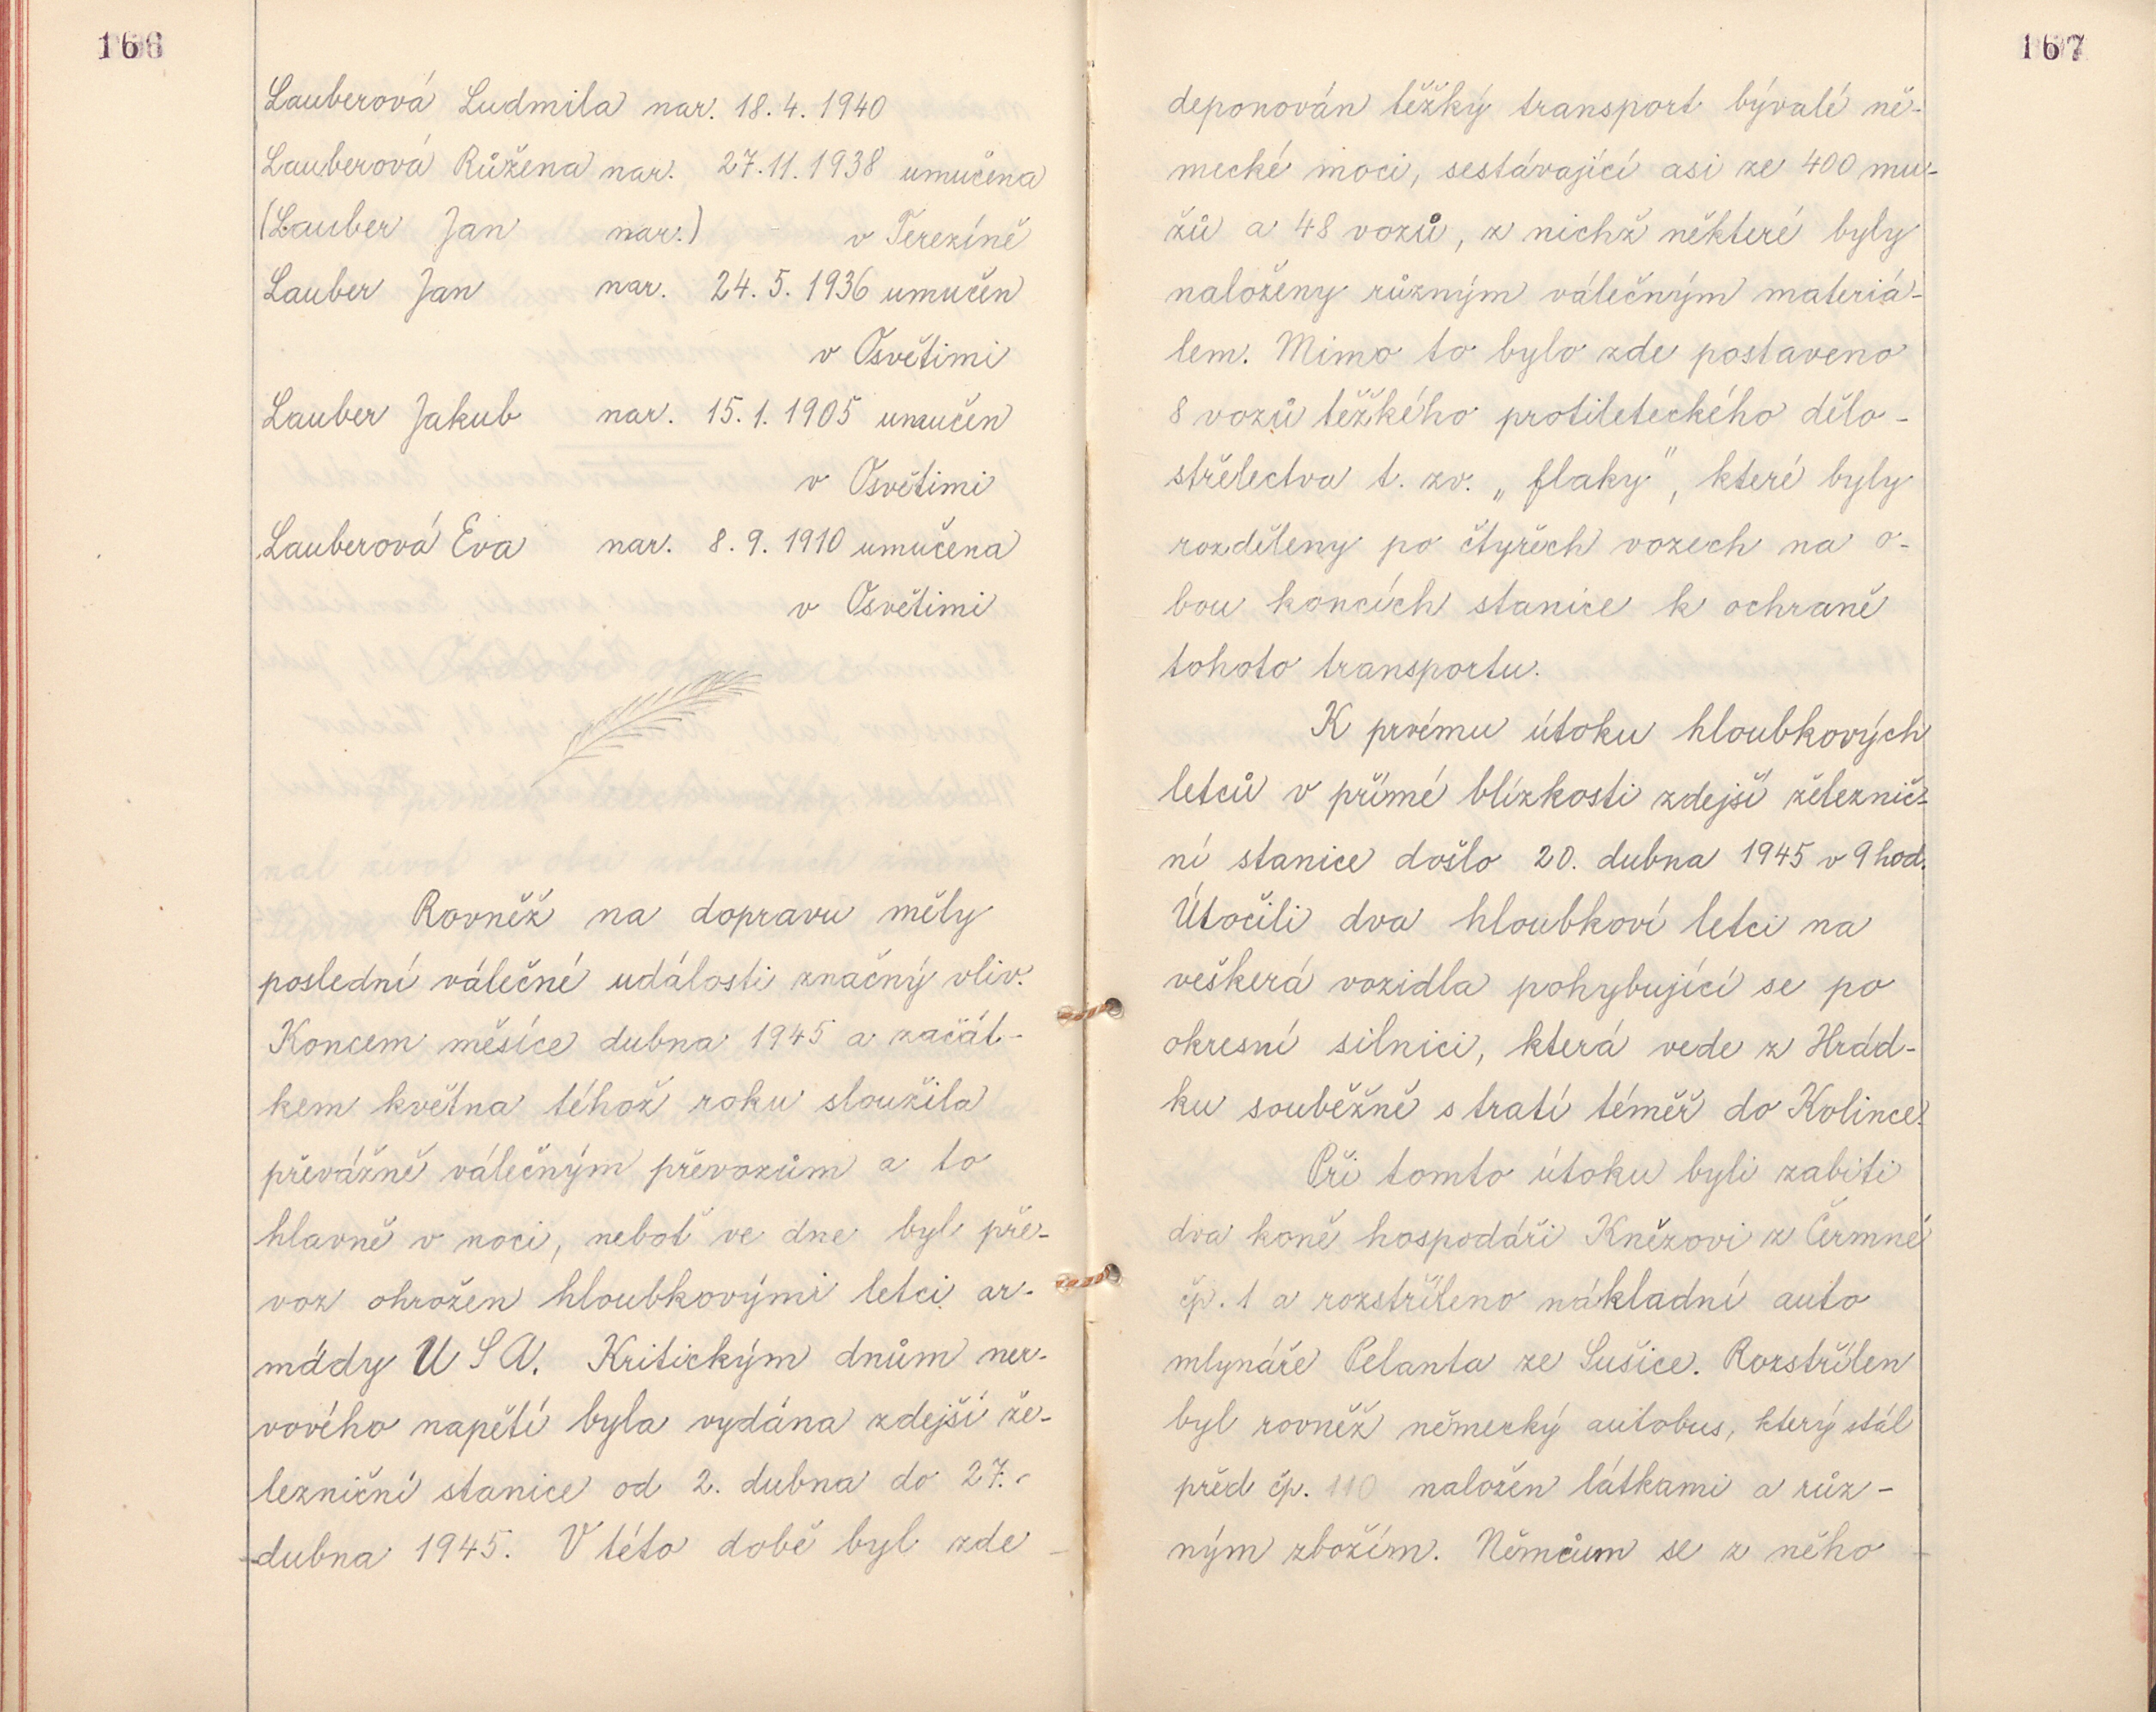 166
Lauberová Ludmila nar. 18. 4. 1940
Lauberová Růžena nar. 27. 11. 1938 umučena
(Lauber Jan nar.) v Terezíně
Lauber Jan nar. 24. 5. 1936 umučen
v Osvětimi
Lauber Jakub nar. 15. 1. 1905 umučen
v Osvětimi
Lauberová Eva nar. 8. 9. 1910 umučena
v Osvětimi
Rovněž na dopravu měly
poslední válečné události značný vliv.
Koncem měsíce dubna 1945 a začát-
kem května téhož roku sloužila
převážně válečným převozům a to
hlavně v noci, neboť ve dne byl pře-
voz ohrožen hloubkovými letci ar-
mády U S A. Kritickým dnům ner-
vového napětí byla vydána zdejší že-
lezniční stanice od 2. dubna do 27.
dubna 1945. V této době byl zde
167
deponován těžký transport bývalé ně-
mecké moci, sestávající asi ze 400 mu-
žů a 48 vozů, z nichž některé byly
naloženy různým válečným materiá-
lem. Mimo to bylo zde postaveno
8 vozů těžkého protileteckého dělo-
střelectva t. zv. „flaky", které byly
rozděleny po čtyřech vozech na o-
bou koncích stanice k ochraně
tohoto transportu.
K prvému útoku hloubkových
letců v přímé blízkosti zdejší železnič-
ní stanice došlo 20. dubna 1945 v 9 hod.
Útočili dva hloubkoví letci na
veškerá vozidla pohybující se po
okresní silnici, která vede z Hrád-
ku souběžně s tratí téměř do Kolince.
Při tomto útoku byli zabiti
dva koně hospodáři Kněžovi z Čermné
čp. 1 a rozstříleno nákladní auto
mlynáře Pelanta ze Sušice. Rozstřílen
byl rovněž německý autobus, který stál
před čp. 110 naložen látkami a růz-
ným zbožím. Němcům se z něho